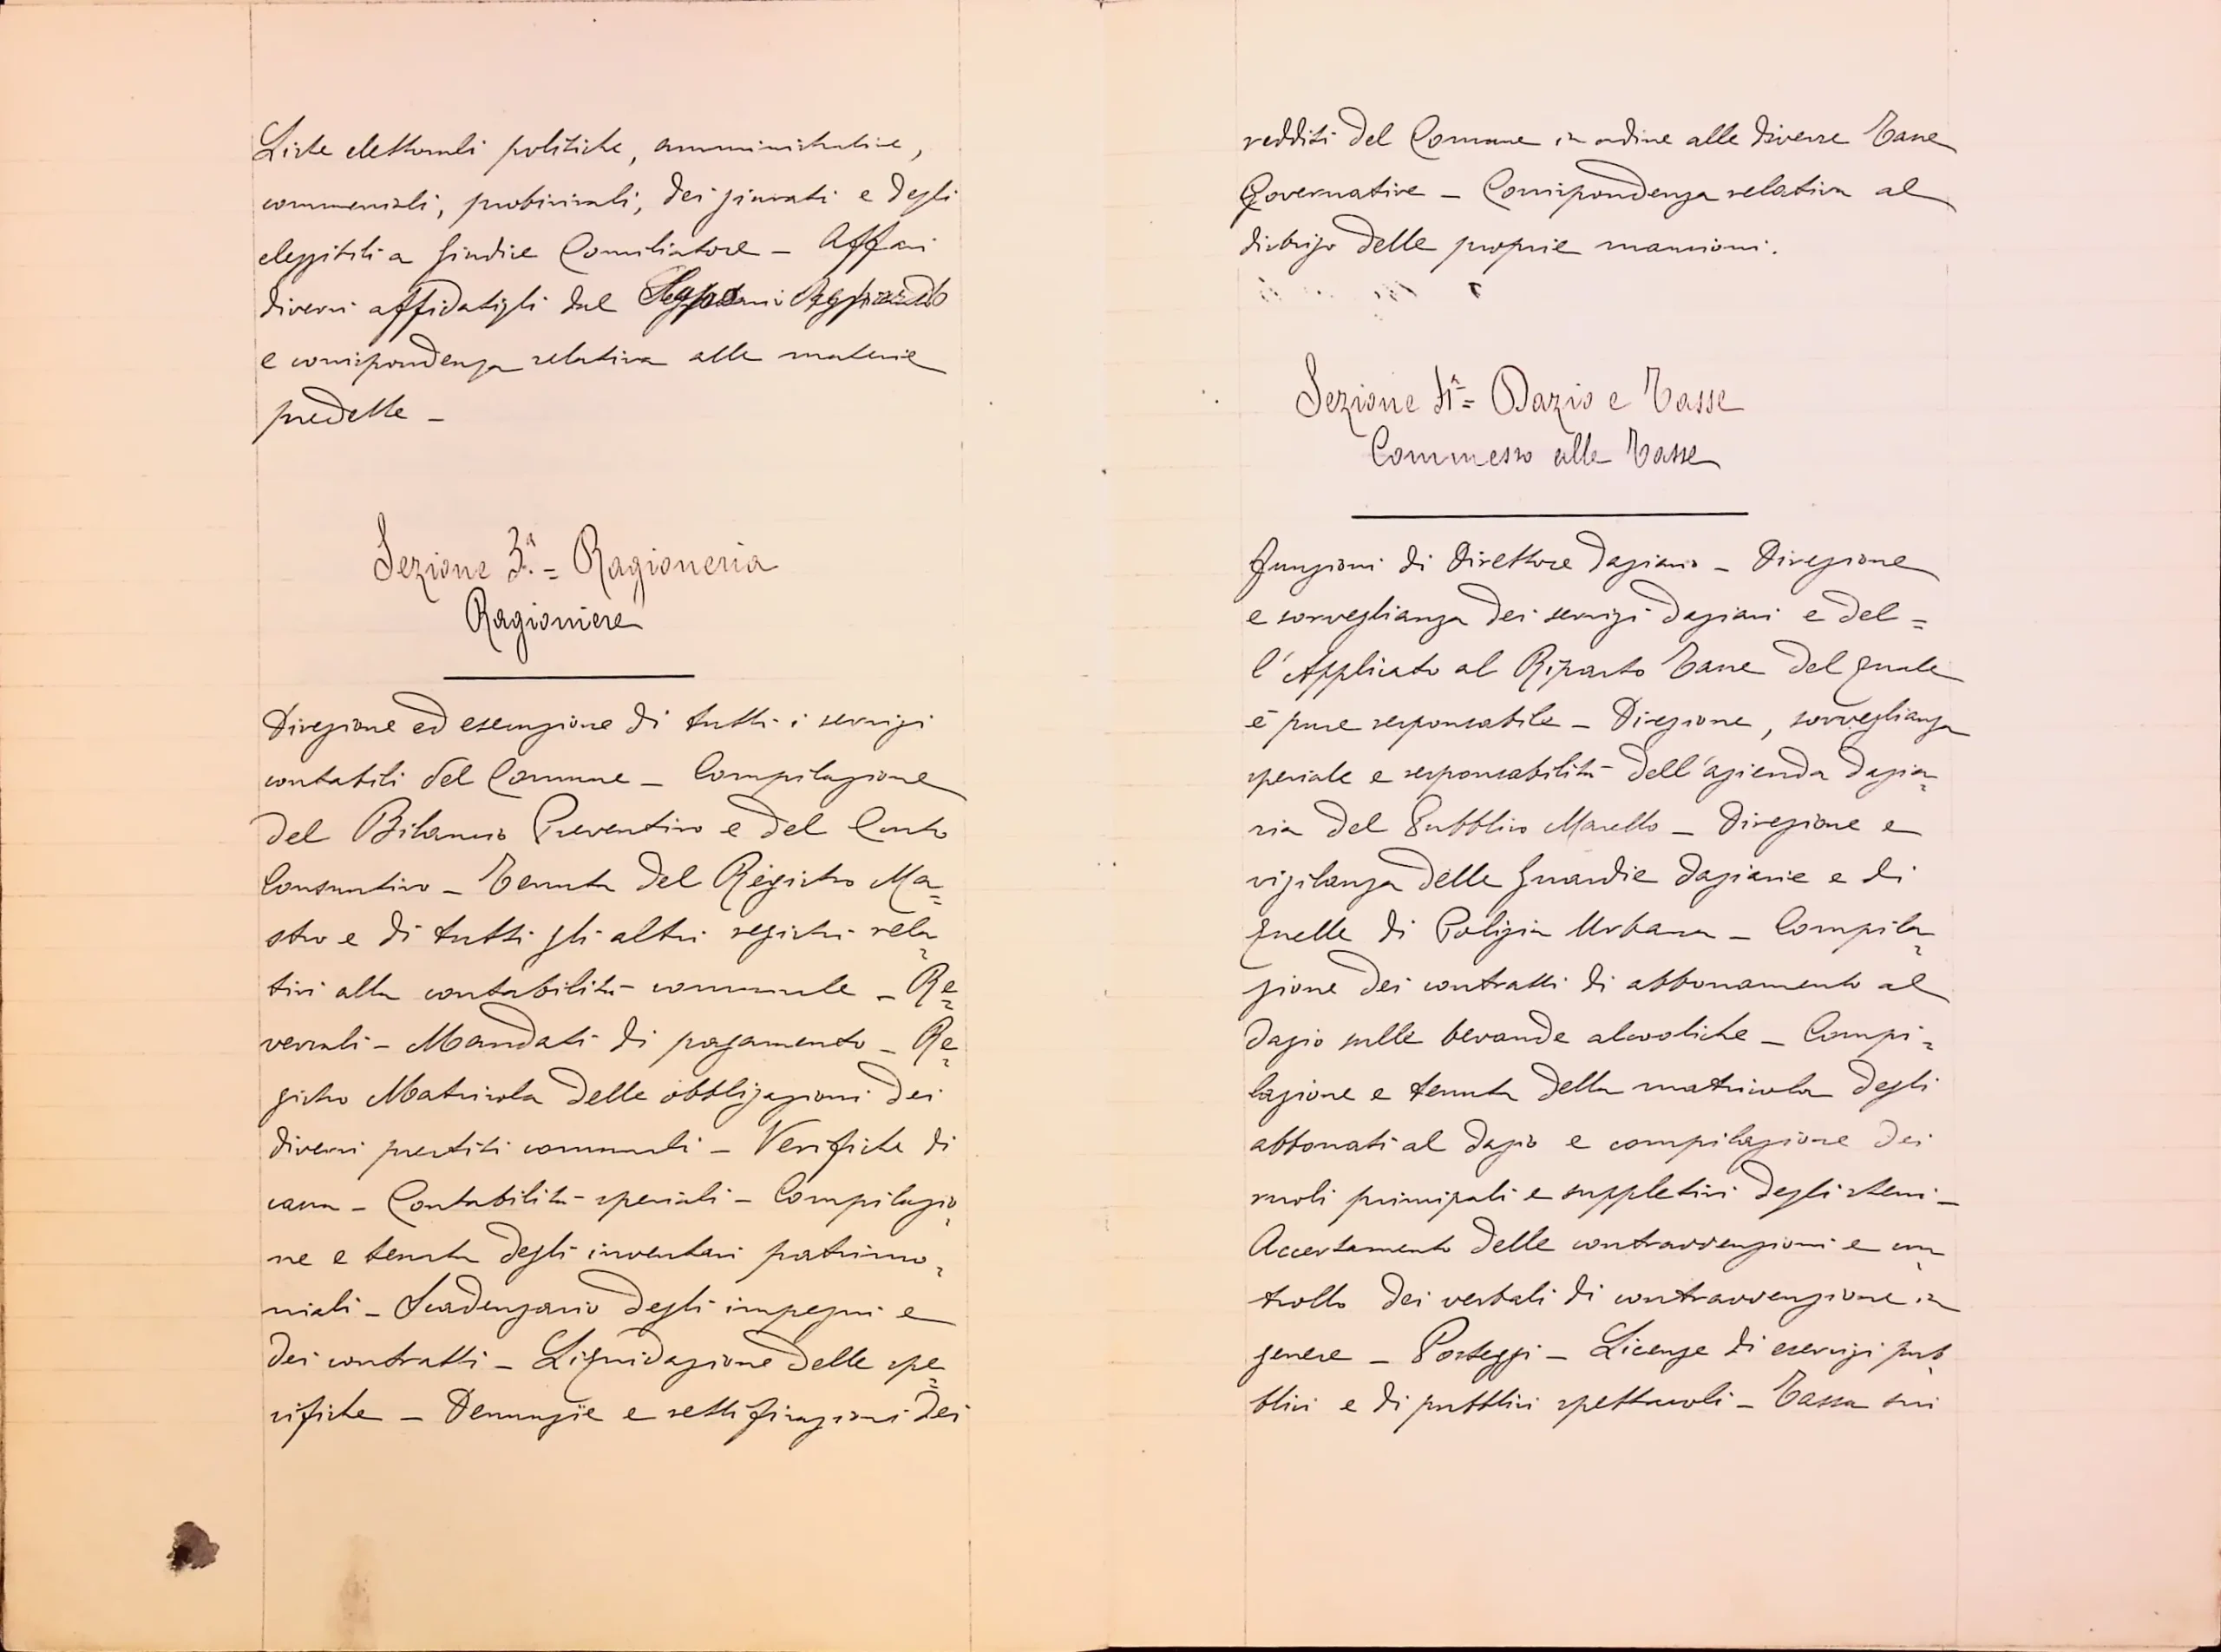 Liste elettorali politiche, amministrative,
commerciali, probivirali, dei giurati e degli
eleggibili a Giudice Conciliatore – Affari
diversi affidatigli dal
e corrispondenza relativa alle materie
predette –
Sezione 3.a = Ragioneria
Ragioniere
Direzione ed esecuzione di tutti i servizi
contabili del Comune – Compilazione
del Bilancio Preventivo e del Conto
Consuntivo – Tenuta del Registro Ma=
stro e di tutti gli altri registri rela=
tivi alla contabilità comunale – Re=
versali – Mandati di pagamento – Re=
gistro Matricola delle obbligazioni dei
diversi prestiti comunali – Verifiche di
cassa – Contabilità speciali – Compilazio=
ne e tenuta degli inventari patrimo=
niali – Scadenzario degli impegni e
dei contratti – Liquidazione delle spe=
cifiche – Denunzie e rettificazioni dei
redditi del Comune in ordine alle diverse Tasse
Governative – Corrispondenza relativa al
disbrigo delle proprie mansioni.
Sezione 4a= Dazio e Tasse
Commesso alle Tasse
Funzioni di Direttore Daziario – Direzione
e sorveglianza dei servizi daziari e del=
l'Applicato al Riparto Tasse del quale
è pure responsabile – Direzione, sorveglianza
speciale e responsabilità dell'azienda dazia=
ria del Pubblico Macello – Direzione e
vigilanza delle Guardie daziarie e di
quelle di Polizia Urbana – Compila=
zione dei contratti di abbonamento al
dazio sulle bevande alcooliche – Compi=
lazione e tenuta della matricola degli
abbonati al dazio e compilazione dei
ruoli principali e suppletivi degli stessi –
Accertamento delle contravvenzioni e con=
trollo dei verbali di contravvenzione in
genere – Posteggi – Licenze di esercizi pub=
blici e di pubblici spettacoli – Tassa sui